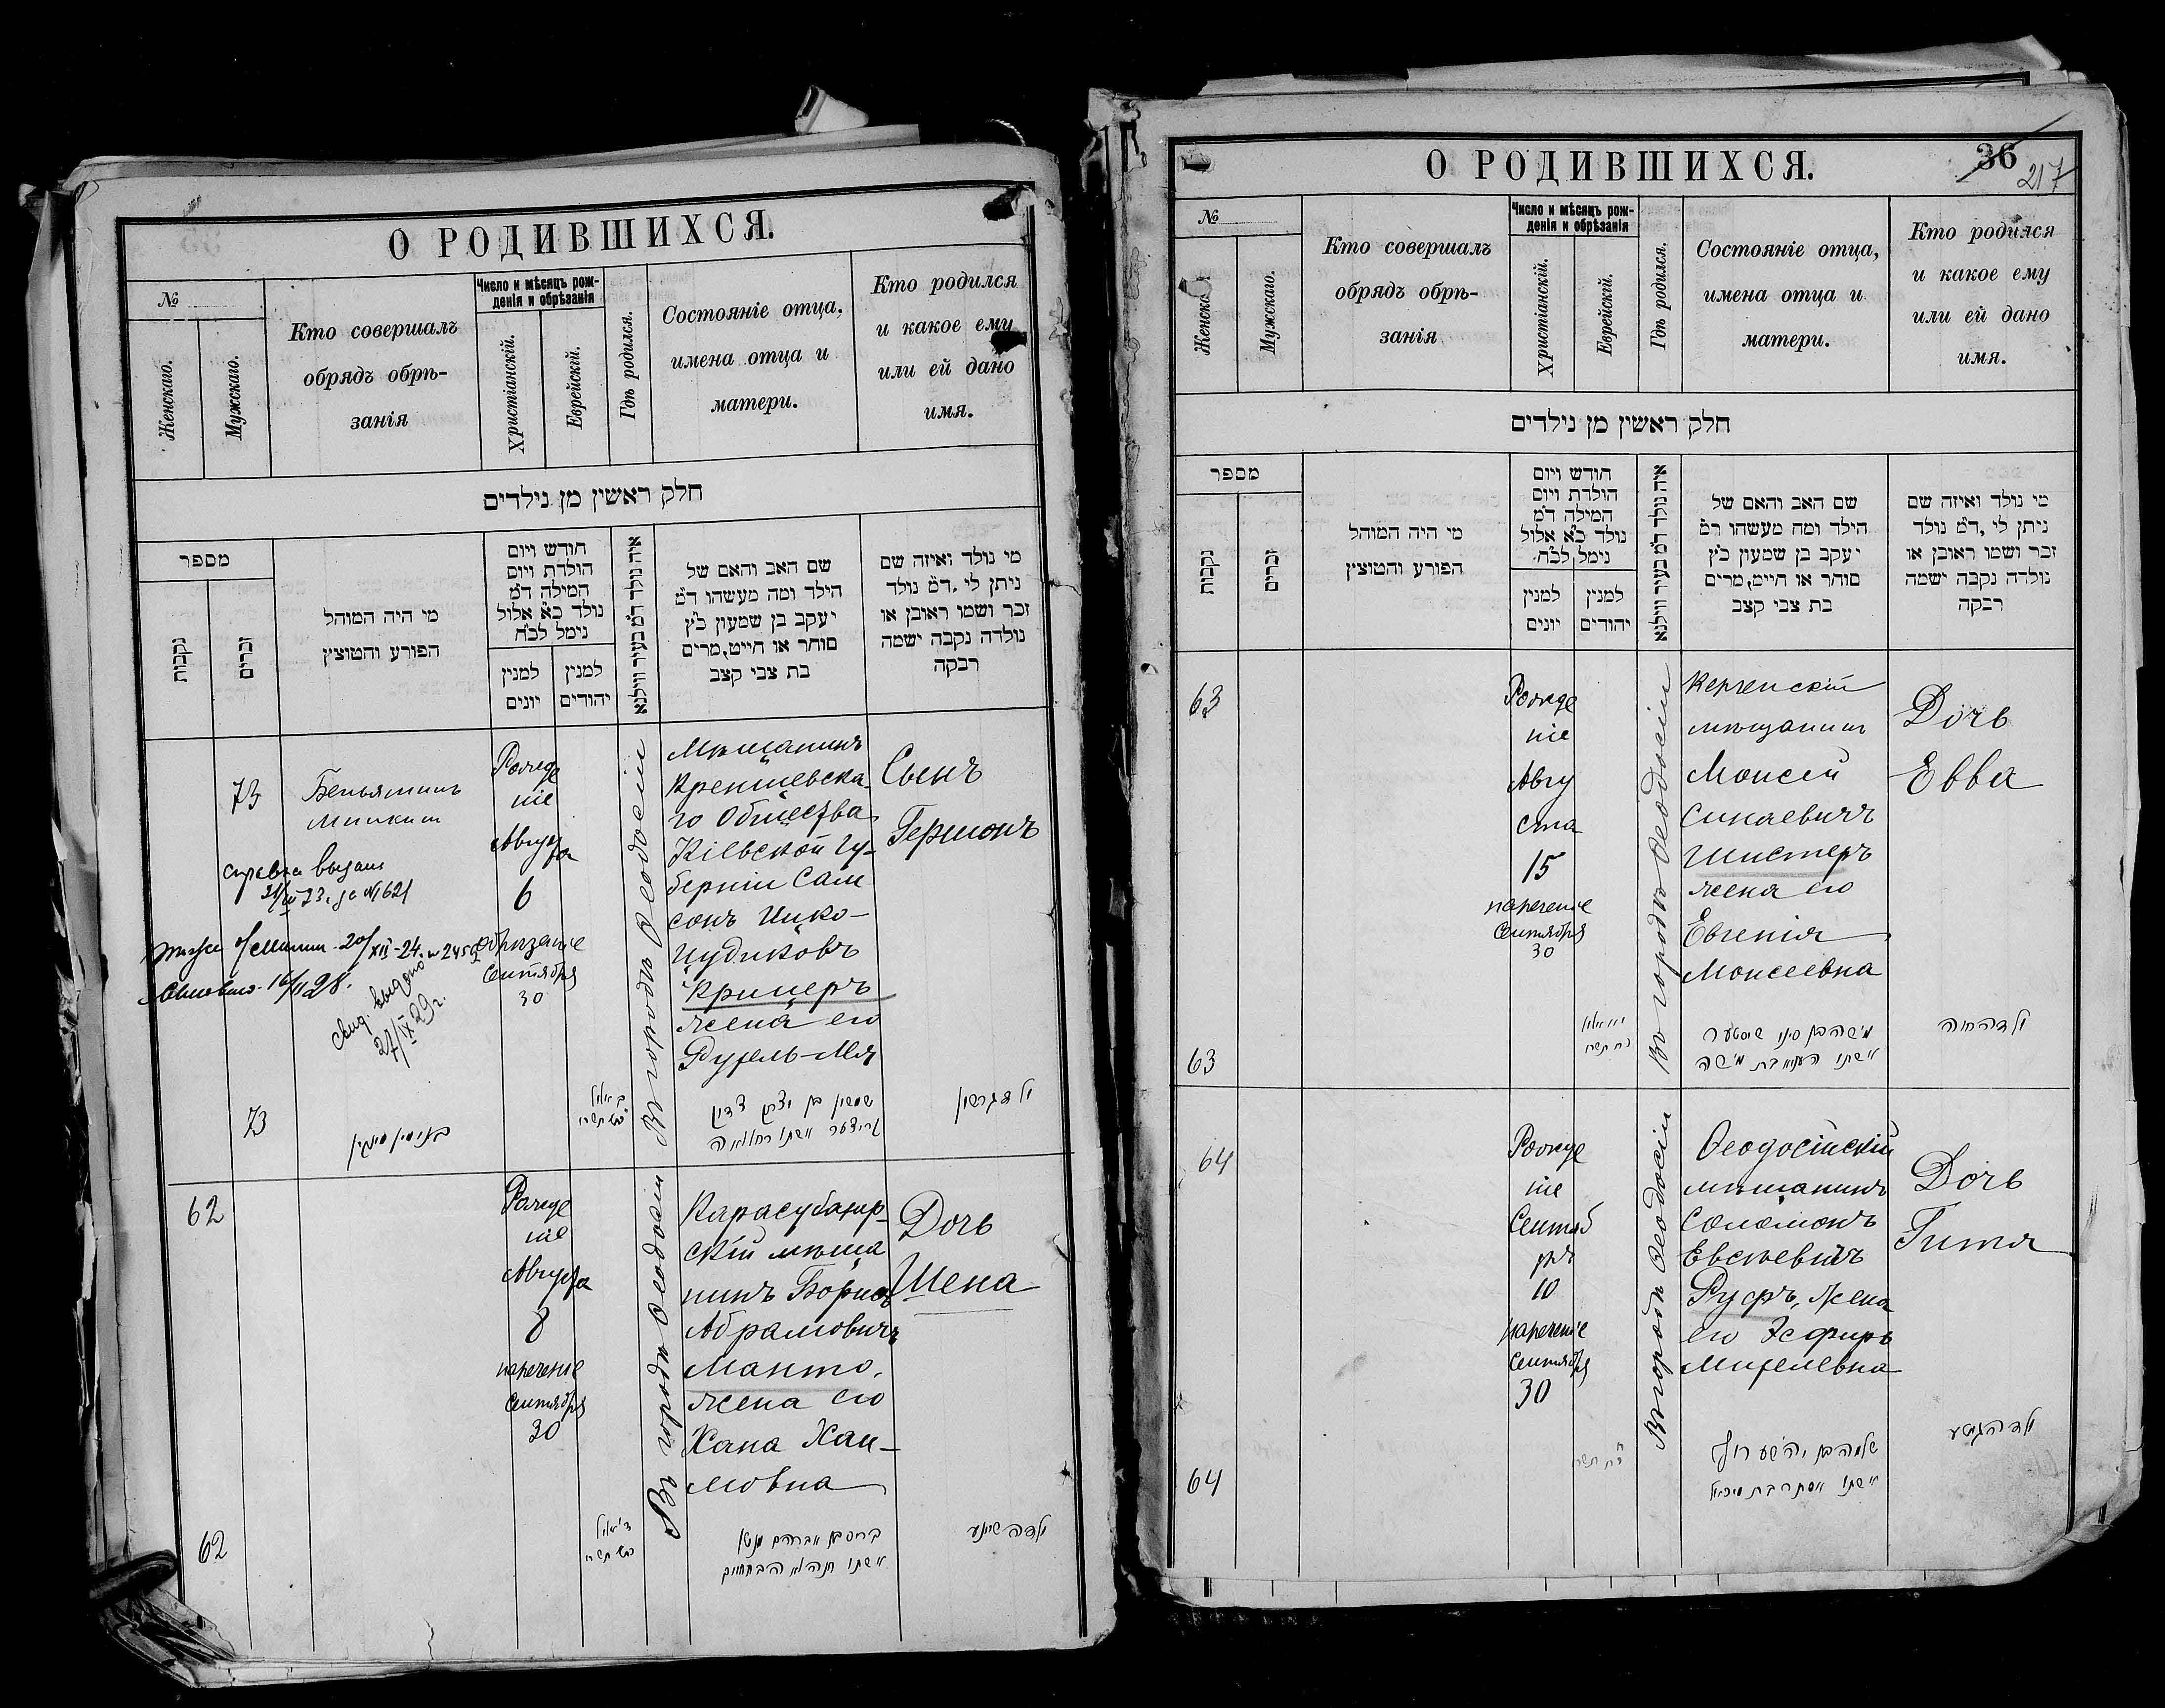 О РОДИВШИХСЯ.
№
Женскаго.
Мужскаго.
Кто совершалъ
обрядъ обрѣ-
занія
Число и мѣсяцъ рож-
денія и обрѣзанія
Христіанскій.
Еврейскій.
Гдѣ родился.
Состояніе отца,
имена отца и
матери.
Кто родился
и какое ему
или ей дано
имя.
חלק ראשין מן נילדים
מספר
נקבות
זכרים
מי היה המוהל
הפורע והמוצץ
חודש ויום
הולדת ויום
המילה ד״מ
נולד כ״א אלול
נימל לכ״ח
למנין
יונים
למנין
יהודים
איה נולד ד״מ בעיר ווילנא
שם האב והאם של
הילד ומה מעשהו ד״מ
יעקב בן שמעון כ״ץ
סוחר או חייט, מרים
בת צבי קצב
מי נולד ואיזה שם
ניתן לי, ד״מ נולד
זכר ושמו ראובן או
נולדה נקבה ושמה
רבקה
73
Беньяминъ
Минкин
справка выдана
Рожде
ніе
Августа
6
обрѣзаніе
Сентября
30
Въ городѣ Ѳеодосіи
Мѣщанинъ
го Общества
Кіевской гу-
берніи Сам
сонъ Ицко-
Цудиковъ
Крицеръ
жена его
Рухель-Лея
Сынъ
Гершонъ
свид. выдано
27/IX 29 г.
73
ילד גרשון
62
Рожде
ніе
Августа
8
нареченіе
Сентября
30
Въ городѣ Ѳеодосіи
Карасубазар-
скій мѣща
нинъ Борисъ
Абрамовичъ
Манто,
жена его
Хана Хаи-
мовна
Дочь
Шена
62
О РОДИВШИХСЯ.
36
217
№
Женскаго.
Мужскаго.
Кто совершалъ
обрядъ обрѣ-
занія
Число и мѣсяцъ рож-
денія и обрѣзанія
Христіанскій.
Еврейскій.
Гдѣ родился.
Состояніе отца,
имена отца и
матери.
Кто родился
и какое ему
или ей дано
имя.
חלק ראשין מן נילדים
מספר
נקבות
זכרים
מי היה המוהל
הפורע והמוצץ
חודש ויום
הולדת ויום
המילה ד״מ
נולד כ״א אלול
נימל לכ״ח
למנין
יונים
למנין
יהודים
איה נולד ד״מ בעיר ווילנא
שם האב והאם של
הילד ומה מעשהו ד״מ
יעקב בן שמעון כ״ץ
סוחר או חייט, מרים
בת צבי קצב
מי נולד ואיזה שם
ניתן לי, ד״מ נולד
זכר ושמו ראובן או
נולדה נקבה ושמה
רבקה
63
Рожде
ніе
Авгу
ста
15
нареченіе
Сентября
30
Въ городѣ Ѳеодосіи
Керченскій
мѣщанинъ
Моисей
Синаевичъ
Шистеръ
жена его
Евгенія
Моисеевна
Дочь
Евва
63
ילדה חוה
64
Рожде
ніе
Сентяб
ря
10
нареченіе
Сентября
30
Въ городѣ Ѳеодосіи
Ѳеодосійскій
мѣщанинъ
Соломонъ
Евсѣевичъ
Руфъ, жена
его Эсфирь
Михелевна
Дочь
Гитя
64